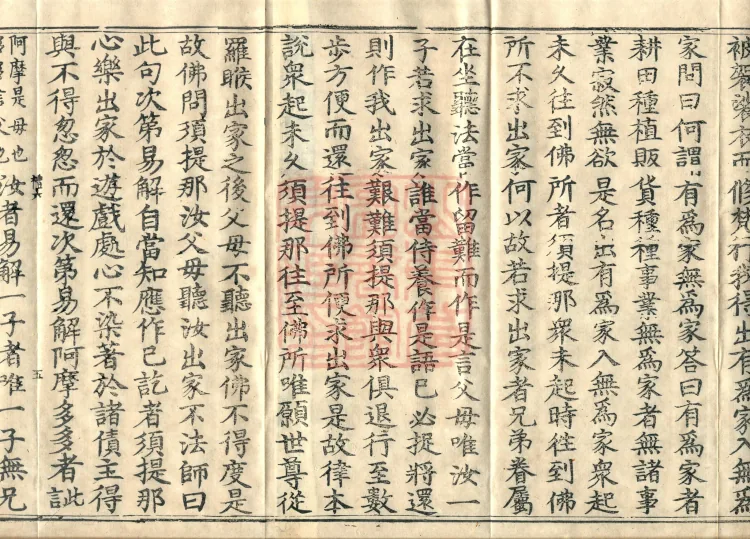 袈裟衣而脩梵行我得出有爲家入無爲
家問曰何謂有爲家無爲家答曰有爲家者
耕田種植販貨種種事業無爲家者無諸事
業寂然無欲是名出有爲家入無爲家衆起
未久往到佛所者須提那衆未起時往到佛
所不求出家何以故若求出家者兄弟眷屬
在坐聽法當作留難而作是言父母唯汝一
子若求出家誰當侍養作是語已必捉將還
則作我出家艱難須提那與衆俱退行至數
步方便而還往到佛所便求出家是故律本
說衆起未久須提那往至佛所唯願世尊從
羅睺出家之後父母不聽出家佛不得度是
故佛問須提那汝父母聽汝出家不法師曰
此句次第易解自當知應作已訖者須提那
心樂出家於遊戲處心不染著於諸債主得
與不得怱怱而還次第易解阿摩多多者此言
五
阿摩是母也
多多言父也
汝者易解一子者唯一子無兄